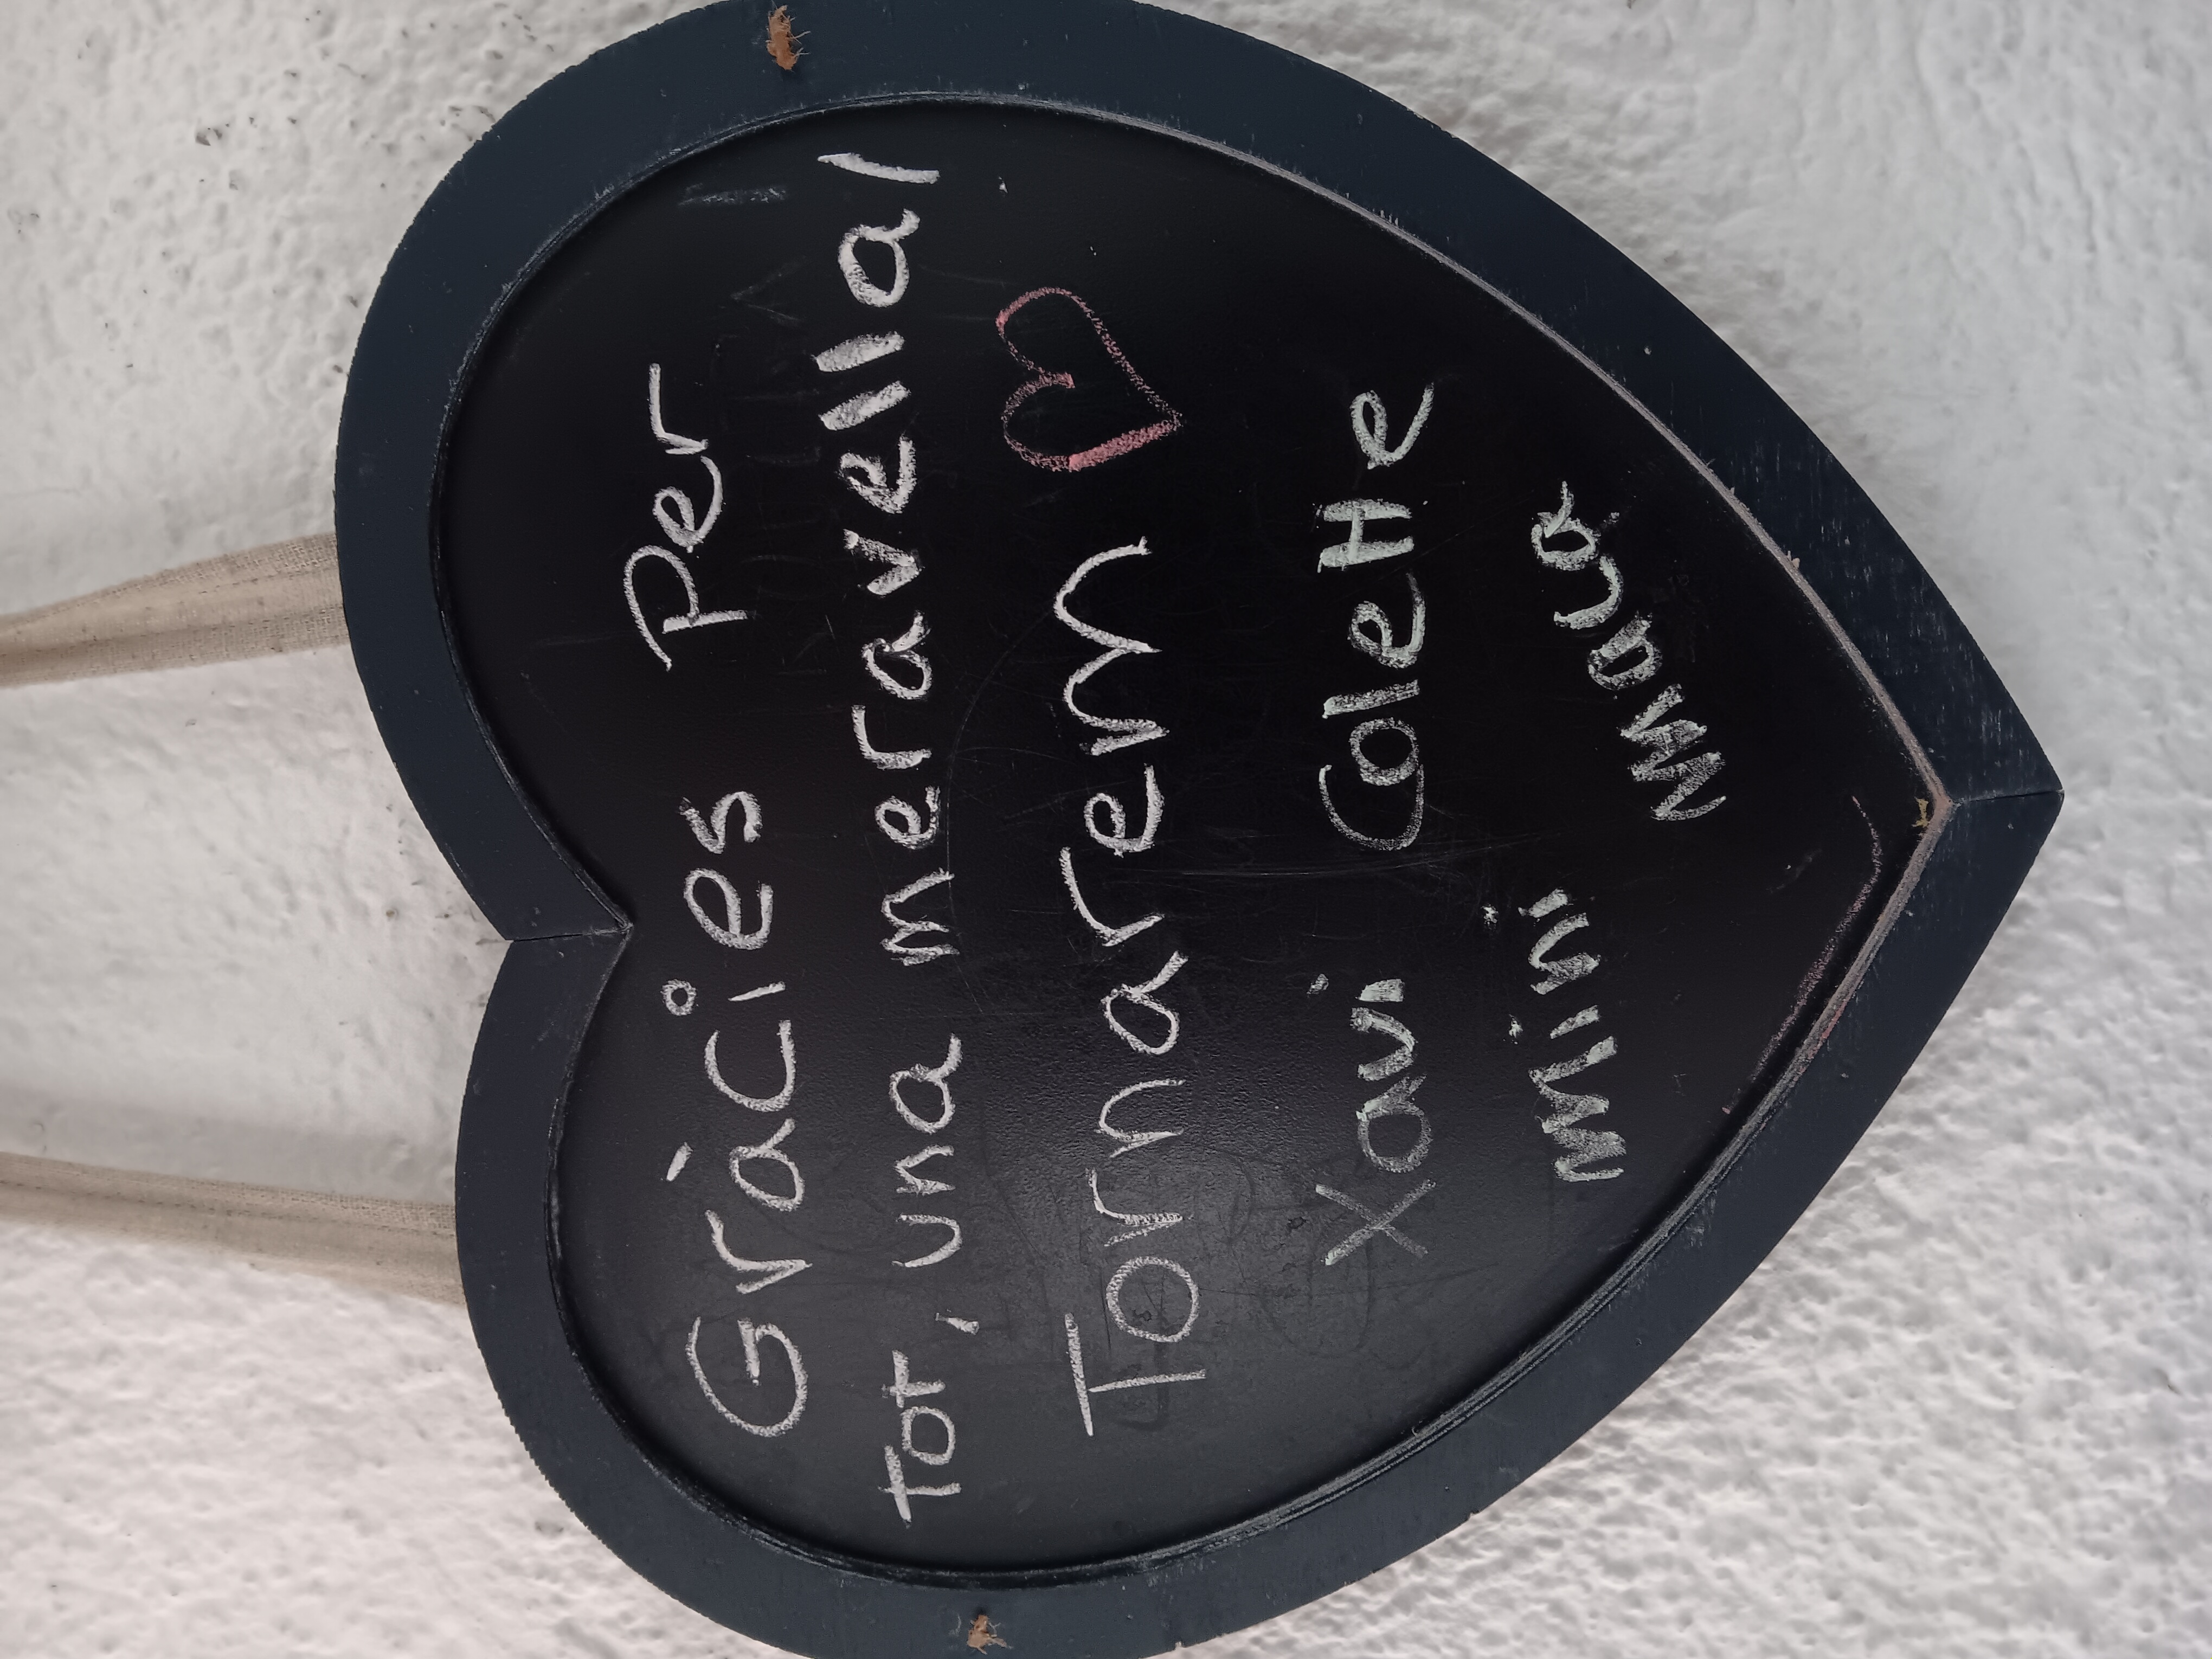 Gràcies per
tot, una meravella!
Tornarem
Xavi Colette
Mimi Manua